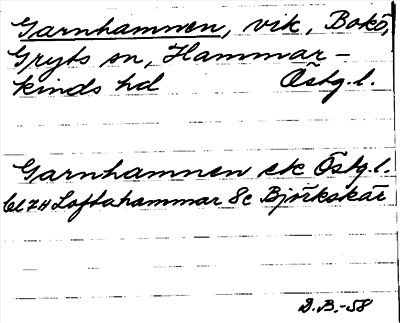 Garnhamnen, vik, Bokö,
Gryts sn, Hammar-
kinds hd Östg.l.
Garnhamnen ek Östg.l.
Loftahammar 8c Björkskär
D.B.-58